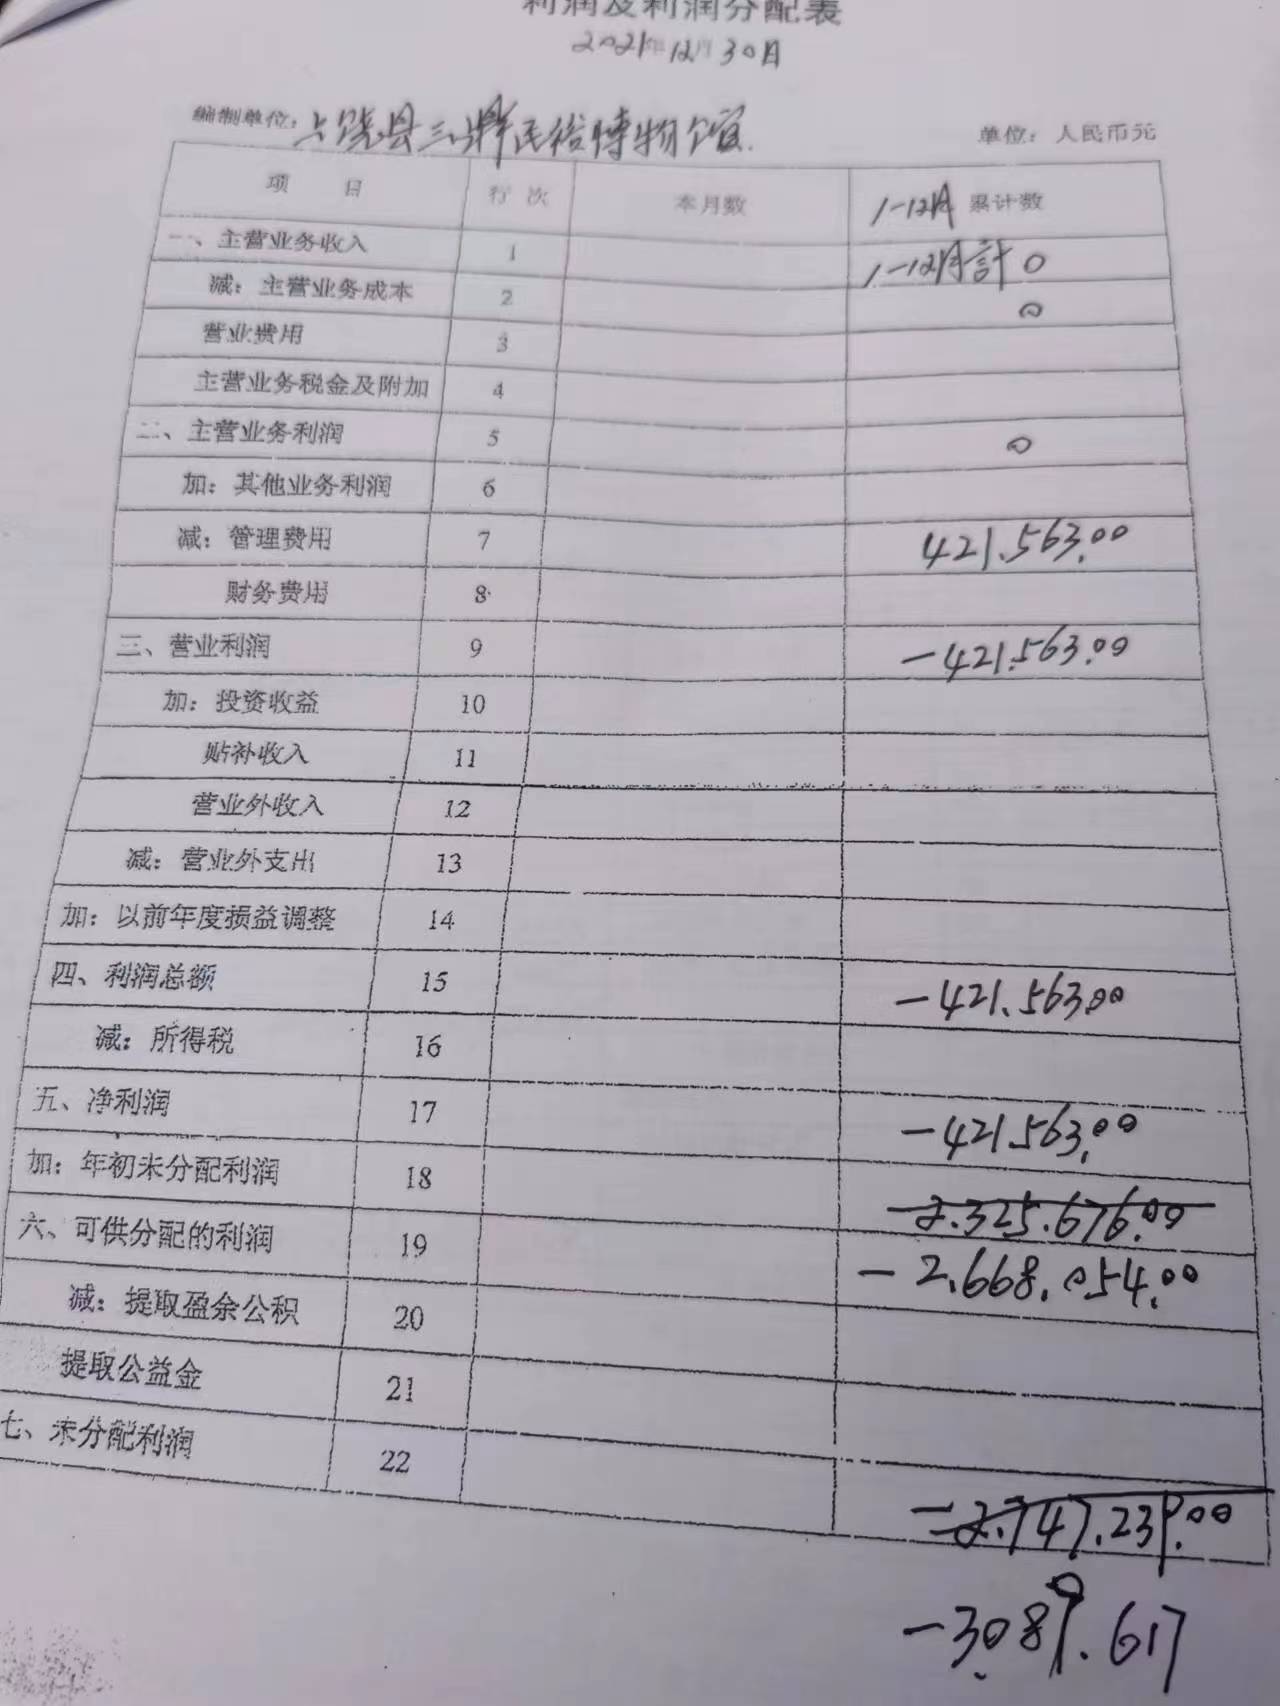 利润及利润分配表
2021年12月30日
编制单位：上饶县三清民俗博物馆 单位：人民币元
项 目 行 次 本月数 1-12月 累计数
一、主营业务收入 1 1-12月計 0
减：主营业务成本 2 0
营业费用 3
主营业务税金及附加 4
二、主营业务利润 5 0
加：其他业务利润 6
减：管理费用 7 421.563.00
财务费用 8
三、营业利润 9 -421.563.00
加：投资收益 10
贴补收入 11
营业外收入 12
减：营业外支出 13
加：以前年度损益调整 14
四、利润总额 15 -421.563.00
减：所得税 16
五、净利润 17 -421.563.00
加：年初未分配利润 18 -2.325.676.00
六、可供分配的利润 19 -2.668.054.00
减：提取盈余公积 20
提取公益金 21
七、未分配利润 22
-2.747.239.00
-3.089.617